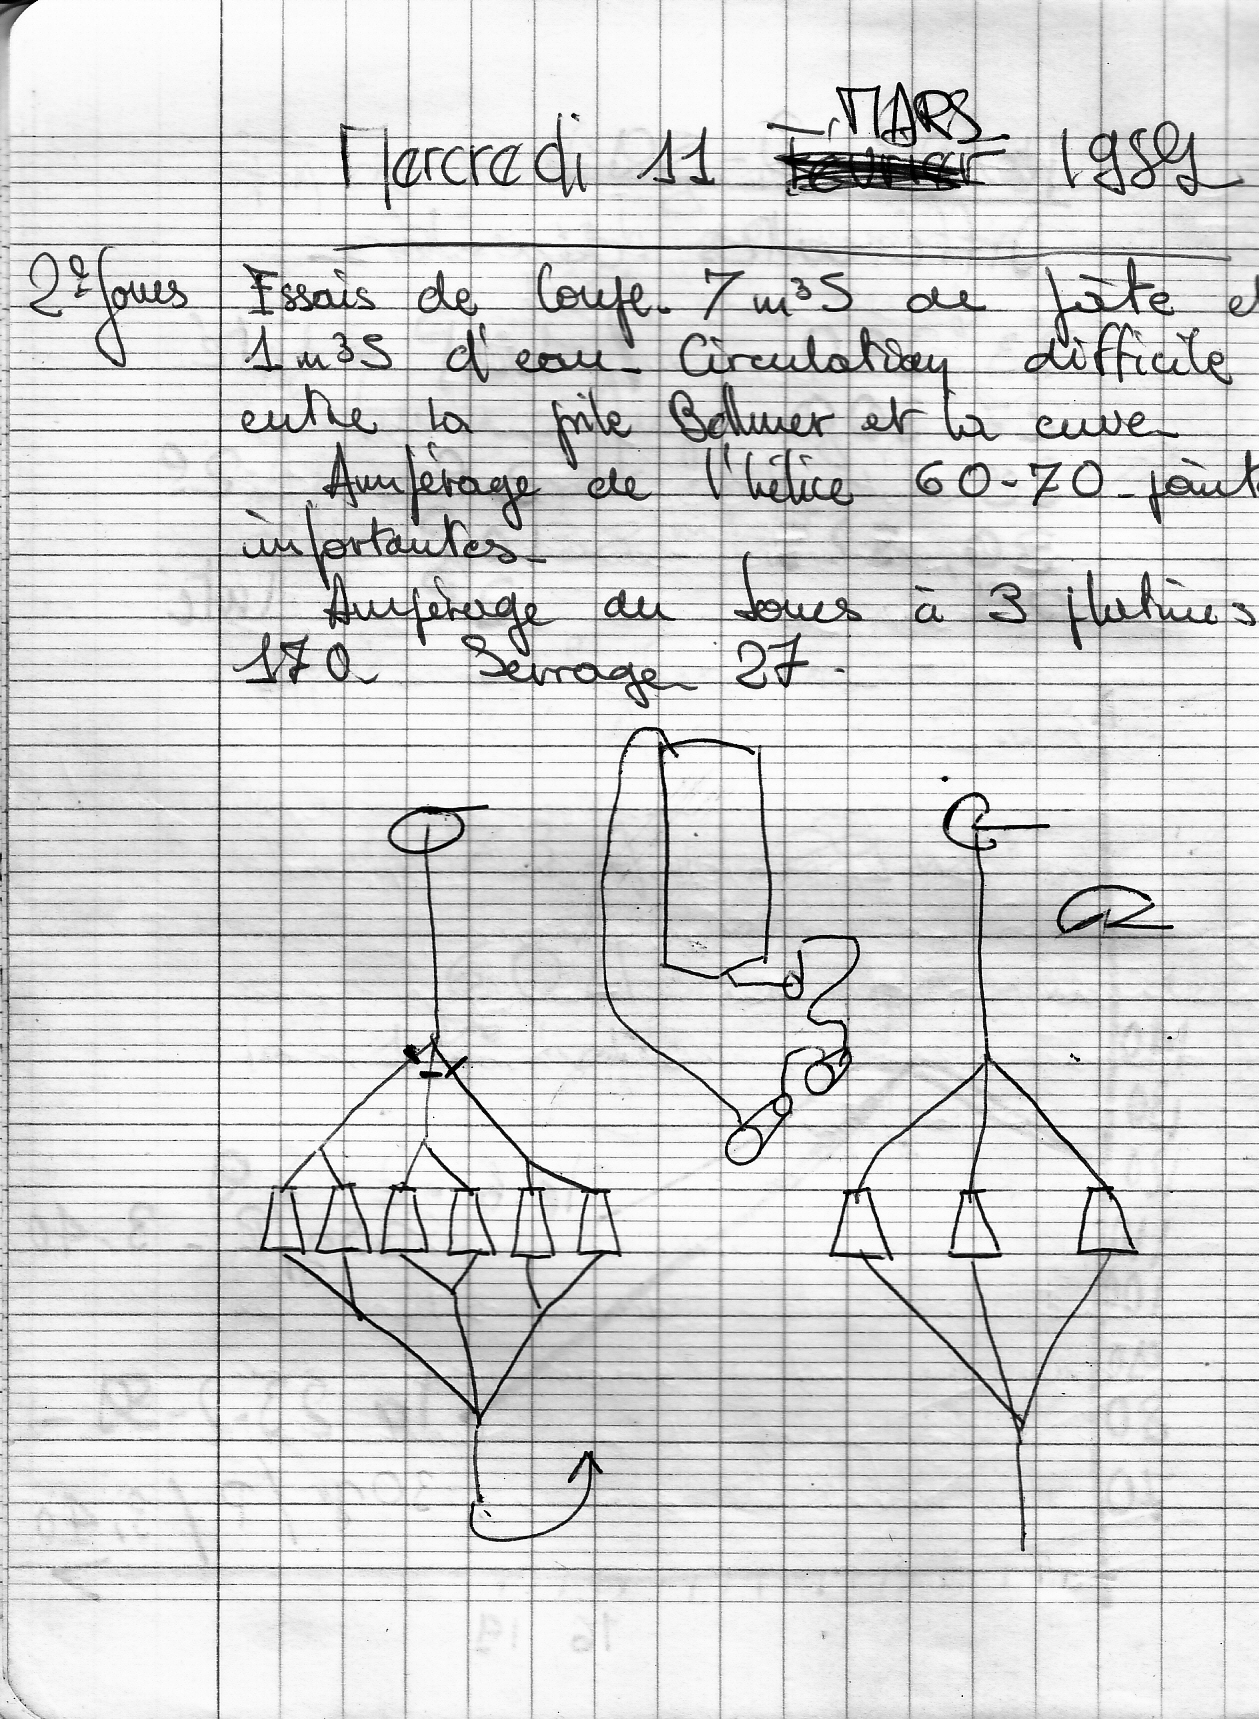 Mercredi 11 MARS 1981
2e Jours Essais de Coupe. 7 m³5 de pâte et
1 m³5 d'eau - Circulation difficile
entre la pile Bellmer et la cuve -
Ampérage de l'hélice 60-70 - pointes
importantes -
Ampérage du Jones à 3 platines
170 Serrage 27.